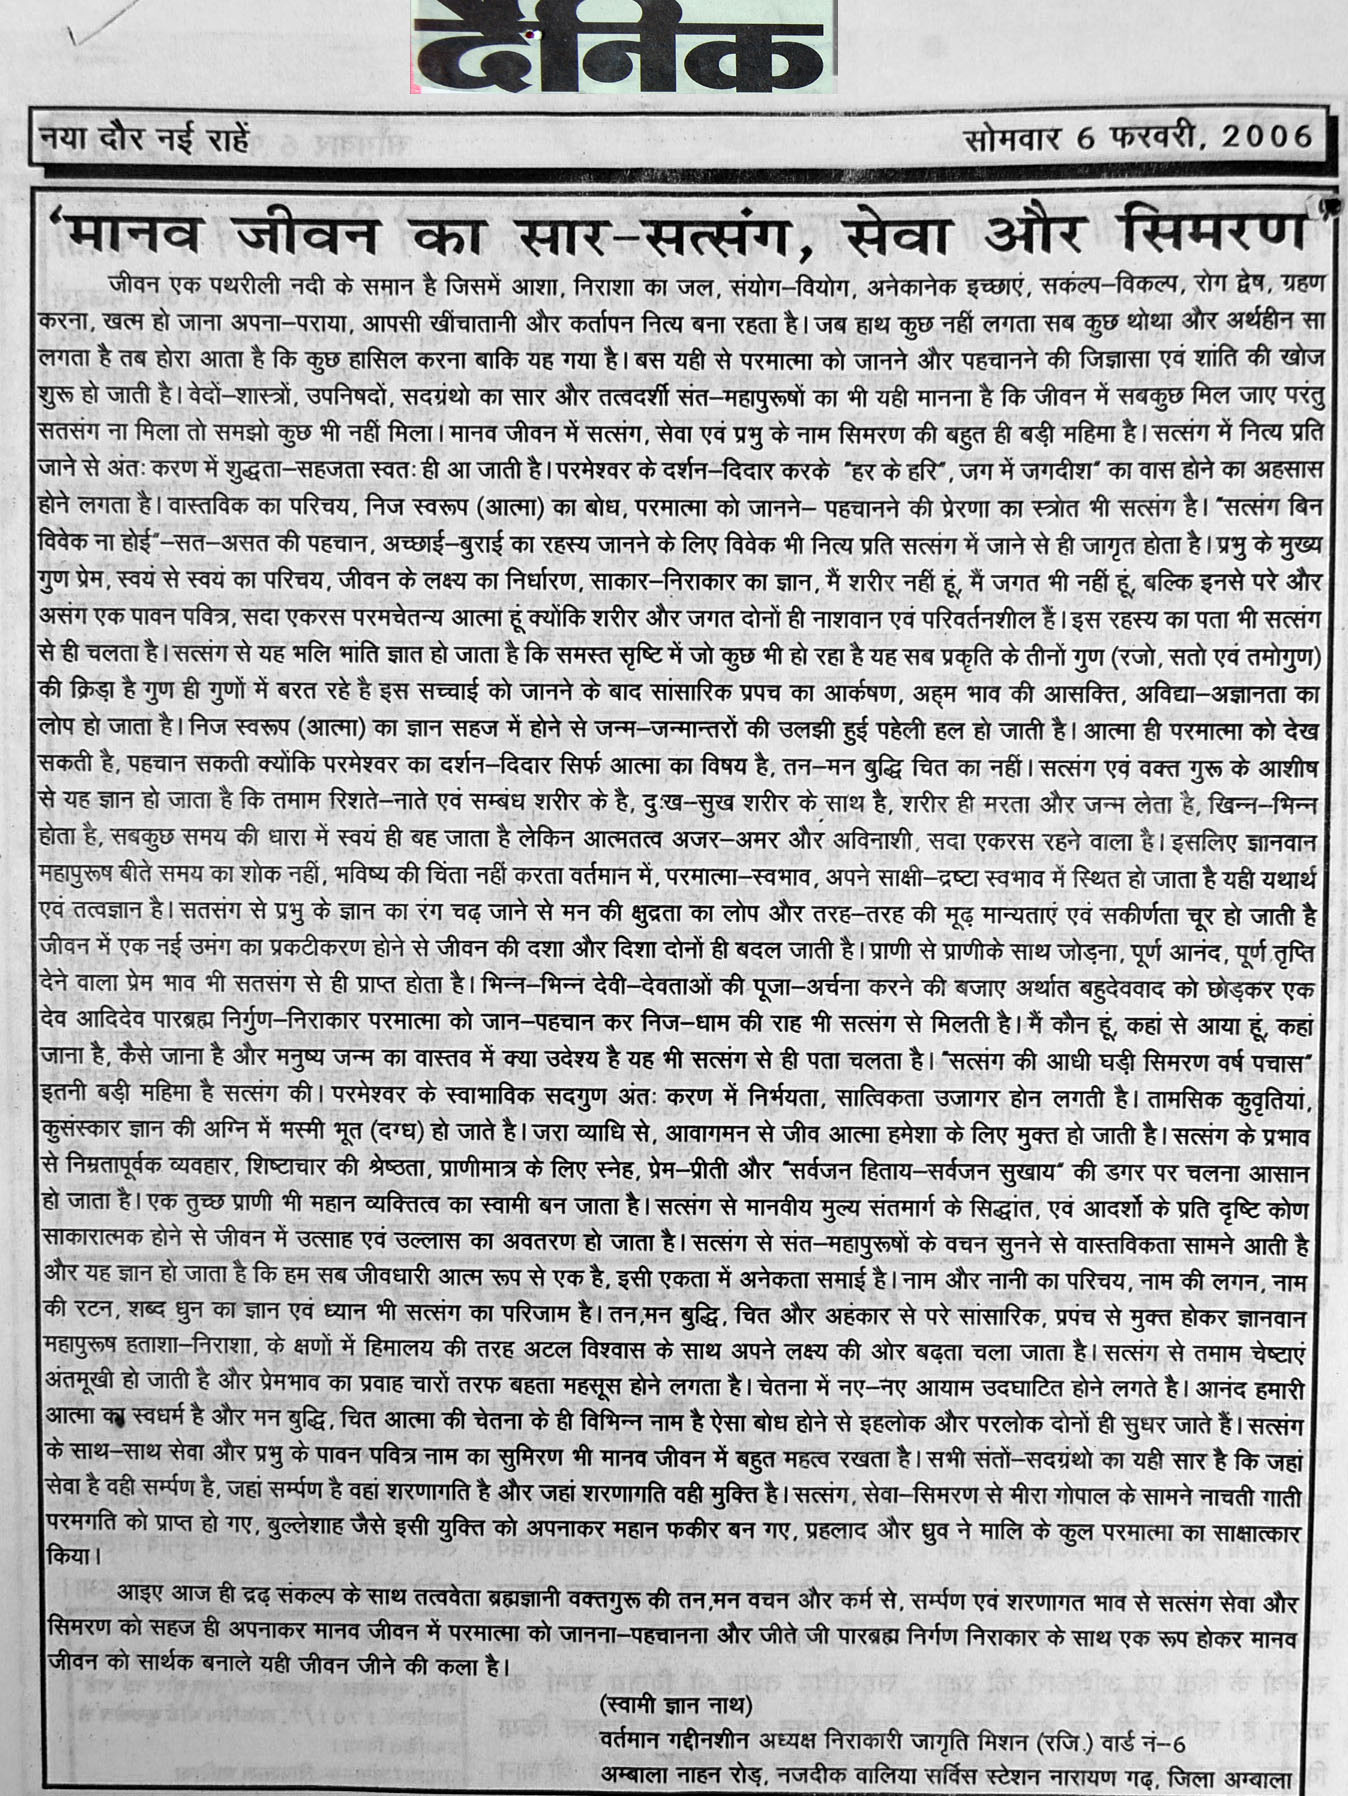 दैनिक
नया दौर नई राहें
सोमवार 6 फरवरी, 2006
'मानव जीवन का सार-सत्संग, सेवा और सिमरण'
जीवन एक पथरीली नदी के समान है जिसमें आशा, निराशा का जल, संयोग-वियोग, अनेकानेक इच्छाएं, सकंल्प-विकल्प, रोग द्वेष, ग्रहण
करना, खत्म हो जाना अपना-पराया, आपसी खींचातानी और कर्तापन नित्य बना रहता है। जब हाथ कुछ नहीं लगता सब कुछ थोथा और अर्थहीन सा
लगता है तब होरा आता है कि कुछ हासिल करना बाकि यह गया है। बस यही से परमात्मा को जानने और पहचानने की जिज्ञासा एवं शांति की खोज
शुरू हो जाती है। वेदों-शास्त्रों, उपनिषदों, सदग्रंथो का सार और तत्वदर्शी संत-महापुरूषों का भी यही मानना है कि जीवन में सबकुछ मिल जाए परंतु
सतसंग ना मिला तो समझो कुछ भी नहीं मिला। मानव जीवन में सत्संग, सेवा एवं प्रभु के नाम सिमरण की बहुत ही बड़ी महिमा है। सत्संग में नित्य प्रति
जाने से अंतः करण में शुद्धता-सहजता स्वतः ही आ जाती है। परमेश्वर के दर्शन-दिदार करके "हर के हरि", जग में जगदीश" का वास होने का अहसास
होने लगता है। वास्तविक का परिचय, निज स्वरूप (आत्मा) का बोध, परमात्मा को जानने- पहचानने की प्रेरणा का स्त्रोत भी सत्संग है। "सत्संग बिन
विवेक ना होई"-सत-असत की पहचान, अच्छाई-बुराई का रहस्य जानने के लिए विवेक भी नित्य प्रति सत्संग में जाने से ही जागृत होता है। प्रभु के मुख्य
गुण प्रेम, स्वयं से स्वयं का परिचय, जीवन के लक्ष्य का निर्धारण, साकार-निराकार का ज्ञान, मैं शरीर नहीं हूं, मैं जगत भी नहीं हूं, बल्कि इनसे परे और
असंग एक पावन पवित्र, सदा एकरस परमचेतन्य आत्मा हूं क्योंकि शरीर और जगत दोनों ही नाशवान एवं परिवर्तनशील हैं। इस रहस्य का पता भी सत्संग
से ही चलता है। सत्संग से यह भलि भांति ज्ञात हो जाता है कि समस्त सृष्टि में जो कुछ भी हो रहा है यह सब प्रकृति के तीनों गुण (रजो, सतो एवं तमोगुण)
की क्रिड़ा है गुण ही गुणों में बरत रहे है इस सच्चाई को जानने के बाद सांसारिक प्रपच का आर्कषण, अहम् भाव की आसक्ति, अविद्या-अज्ञानता का
लोप हो जाता है। निज स्वरूप (आत्मा) का ज्ञान सहज में होने से जन्म-जन्मान्तरों की उलझी हुई पहेली हल हो जाती है। आत्मा ही परमात्मा को देख
सकती है, पहचान सकती क्योंकि परमेश्वर का दर्शन-दिदार सिर्फ आत्मा का विषय है, तन-मन बुद्धि चित का नहीं। सत्संग एवं वक्त गुरू के आशीष
से यह ज्ञान हो जाता है कि तमाम रिशते-नाते एवं सम्बंध शरीर के है, दुःख-सुख शरीर के साथ है, शरीर ही मरता और जन्म लेता है, खिन्न-भिन्न
होता है, सबकुछ समय की धारा में स्वयं ही बह जाता है लेकिन आत्मतत्व अजर-अमर और अविनाशी, सदा एकरस रहने वाला है। इसलिए ज्ञानवान
महापुरूष बीते समय का शोक नहीं, भविष्य की चिंता नहीं करता वर्तमान में, परमात्मा-स्वभाव, अपने साक्षी-द्रष्टा स्वभाव में स्थित हो जाता है यही यथार्थ
एवं तत्वज्ञान है। सतसंग से प्रभु के ज्ञान का रंग चढ़ जाने से मन की क्षुद्रता का लोप और तरह-तरह की मूढ़ मान्यताएं एवं सकीर्णता चूर हो जाती है
जीवन में एक नई उमंग का प्रकटीकरण होने से जीवन की दशा और दिशा दोनों ही बदल जाती है। प्राणी से प्राणीके साथ जोड़ना, पूर्ण आनंद, पूर्ण तृप्ति
देने वाला प्रेम भाव भी सतसंग से ही प्राप्त होता है। भिन्न-भिन्न देवी-देवताओं की पूजा-अर्चना करने की बजाए अर्थात बहुदेववाद को छोड़कर एक
देव आदिदेव पारब्रह्म निर्गुण-निराकार परमात्मा को जान-पहचान कर निज-धाम की राह भी सत्संग से मिलती है। मैं कौन हूं, कहां से आया हूं, कहां
जाना है, कैसे जाना है और मनुष्य जन्म का वास्तव में क्या उदेश्य है यह भी सत्संग से ही पता चलता है। "सत्संग की आधी घड़ी सिमरण वर्ष पचास"
इतनी बड़ी महिमा है सत्संग की। परमेश्वर के स्वाभाविक सदगुण अंतः करण में निर्भयता, सात्विकता उजागर होन लगती है। तामसिक कुवृतियां,
कुसंस्कार ज्ञान की अग्नि में भस्मी भूत (दग्ध) हो जाते है। जरा व्याधि से, आवागमन से जीव आत्मा हमेशा के लिए मुक्त हो जाती है। सत्संग के प्रभाव
से निम्रतापूर्वक व्यवहार, शिष्टाचार की श्रेष्ठता, प्राणीमात्र के लिए स्नेह, प्रेम-प्रीती और "सर्वजन हिताय-सर्वजन सुखाय" की डगर पर चलना आसान
हो जाता है। एक तुच्छ प्राणी भी महान व्यक्तित्व का स्वामी बन जाता है। सत्संग से मानवीय मुल्य संतमार्ग के सिद्धांत, एवं आदर्शो के प्रति दृष्टि कोण
साकारात्मक होने से जीवन में उत्साह एवं उल्लास का अवतरण हो जाता है। सत्संग से संत-महापुरूषों के वचन सुनने से वास्तविकता सामने आती है
और यह ज्ञान हो जाता है कि हम सब जीवधारी आत्म रूप से एक है, इसी एकता में अनेकता समाई है। नाम और नानी का परिचय, नाम की लगन, नाम
की रटन, शब्द धुन का ज्ञान एवं ध्यान भी सत्संग का परिजाम है। तन,मन बुद्धि, चित और अहंकार से परे सांसारिक, प्रपंच से मुक्त होकर ज्ञानवान
महापुरूष हताशा-निराशा, के क्षणों में हिमालय की तरह अटल विश्वास के साथ अपने लक्ष्य की ओर बढ़ता चला जाता है। सत्संग से तमाम चेष्टाएं
अंतमूखी हो जाती है और प्रेमभाव का प्रवाह चारों तरफ बहता महसूस होने लगता है। चेतना में नए-नए आयाम उदघाटित होने लगते है। आनंद हमारी
आत्मा का स्वधर्म है और मन बुद्धि, चित आत्मा की चेतना के ही विभिन्न नाम है ऐसा बोध होने से इहलोक और परलोक दोनों ही सुधर जाते हैं। सत्संग
के साथ-साथ सेवा और प्रभु के पावन पवित्र नाम का सुमिरण भी मानव जीवन में बहुत महत्व रखता है। सभी संतों-सदग्रंथो का यही सार है कि जहां
सेवा है वही सर्म्पण है, जहां सर्म्पण है वहां शरणागति है और जहां शरणागति वही मुक्ति है। सत्संग, सेवा-सिमरण से मीरा गोपाल के सामने नाचती गाती
परमगति को प्राप्त हो गए, बुल्लेशाह जैसे इसी युक्ति को अपनाकर महान फकीर बन गए, प्रहलाद और ध्रुव ने मालि के कुल परमात्मा का साक्षात्कार
किया।
आइए आज ही द्रढ़ संकल्प के साथ तत्ववेता ब्रह्मज्ञानी वक्तगुरू की तन,मन वचन और कर्म से, सर्म्पण एवं शरणागत भाव से सत्संग सेवा और
सिमरण को सहज ही अपनाकर मानव जीवन में परमात्मा को जानना-पहचानना और जीते जी पारब्रह्म निर्गण निराकार के साथ एक रूप होकर मानव
जीवन को सार्थक बनाले यही जीवन जीने की कला है।
(स्वामी ज्ञान नाथ)
वर्तमान गद्दीनशीन अध्यक्ष निराकारी जागृति मिशन (रजि.) वार्ड नं-6
अम्बाला नाहन रोड़, नजदीक वालिया सर्विस स्टेशन नारायण गढ़, जिला अम्बाला